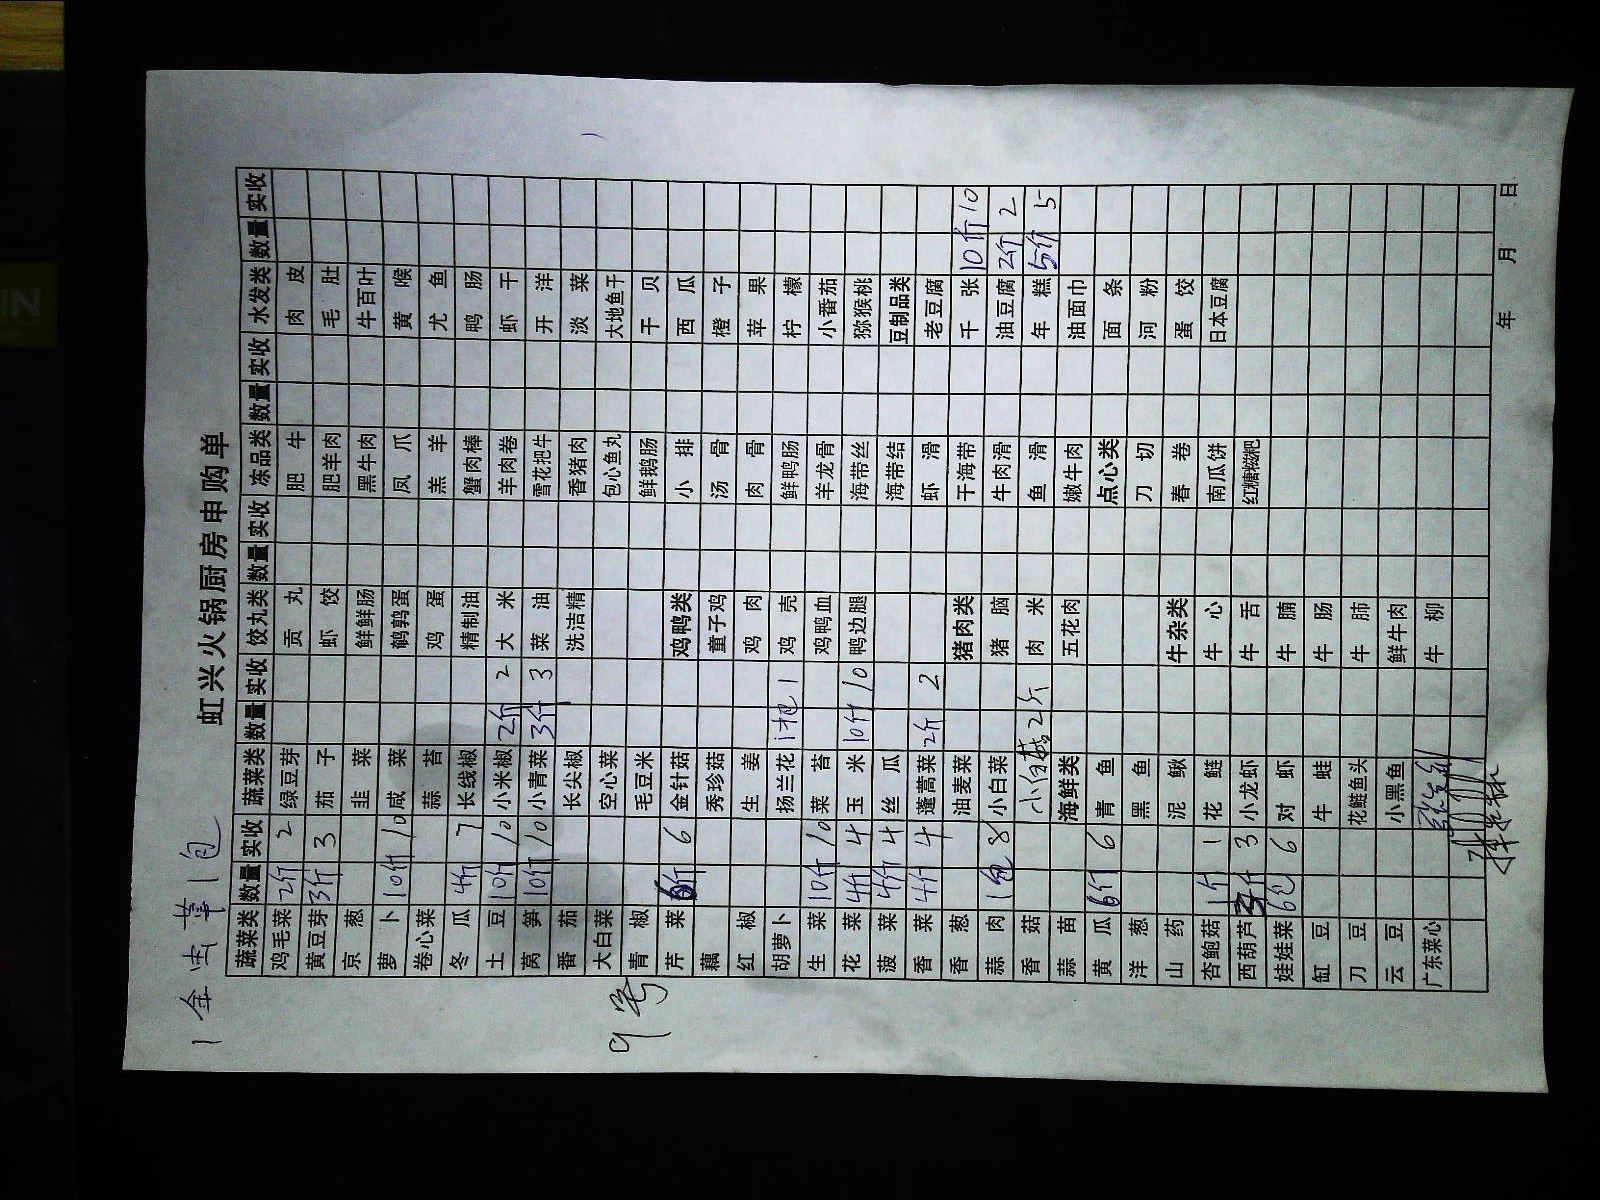 1 金 1包
虹兴火锅厨房申购单
蔬菜类 数量 实收 蔬菜类 数量 实收 饺丸类 数量 实收 冻品类 数量 实收 水发类 数量 实收
鸡毛菜 2斤 2 绿豆芽 贡丸 肥牛 肉皮
黄豆芽 3斤 3 茄子 虾饺 肥羊肉 毛肚
京葱 韭菜 鲜鲜肠 黑牛肉 牛百叶
萝卜 10斤 10 咸菜 鹌鹑蛋 凤爪 黄喉
卷心菜 蒜苔 鸡蛋 羔羊 尤鱼
冬瓜 4斤 7 长线椒 精制油 蟹肉棒 鸭肠
土豆 10斤 10 小米椒 2斤 2 大米 羊肉卷 虾干
莴笋 10斤 10 小青菜 3斤 3 菜油 雪花把牛 开洋
番茄 长尖椒 洗洁精 香猪肉 淡菜
大白菜 空心菜 包心鱼丸 大地鱼干
青椒 毛豆米 鲜鹅肠 干贝
芹菜 6斤 6 金针菇 鸡鸭类 小排 西瓜
藕 秀珍菇 童子鸡 汤骨 橙子
红椒 生姜 鸡肉 肉骨 苹果
胡萝卜 扬兰花 1把 1 鸡壳 鲜鸭肠 柠檬
生菜 10斤 10 菜苔 鸡鸭血 羊龙骨 小番茄
花菜 4斤 4 玉米 10斤 10 鸭边腿 海带丝 猕猴桃
菠菜 4斤 4 丝瓜 海带结 豆制品类
香菜 4斤 4 蓬蒿菜 2斤 2 虾滑 老豆腐
香葱 油麦菜 猪肉类 干海带 千张 10斤 10
蒜肉 1包 8 小白菜 猪脑 牛肉滑 油豆腐 2斤 2
香菇 小白菇 2斤 肉米 鱼滑 年糕 5斤 5
蒜苗 海鲜类 五花肉 嫩牛肉 油面巾
黄瓜 6斤 6 青鱼 点心类 面条
洋葱 黑鱼 刀切 河粉
山药 泥鳅 牛杂类 春卷 蛋饺
杏鲍菇 1斤 1 花鲢 牛心 南瓜饼 日本豆腐
西葫芦 3斤 3 小龙虾 牛舌 红糖糍粑
娃娃菜 6包 6 对虾 牛腩
缸豆 牛蛙 牛肠
刀豆 花鲢鱼头 牛肺
云豆 小黑鱼 鲜牛肉
广东菜心 牛柳
年 月 日
9号